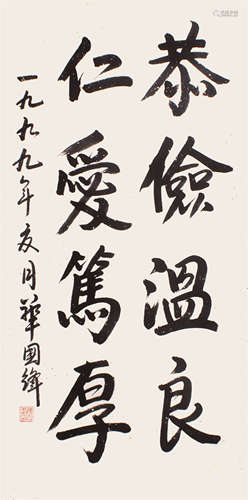 恭儉溫良
仁愛篤厚
一九九九年夏月華國鋒